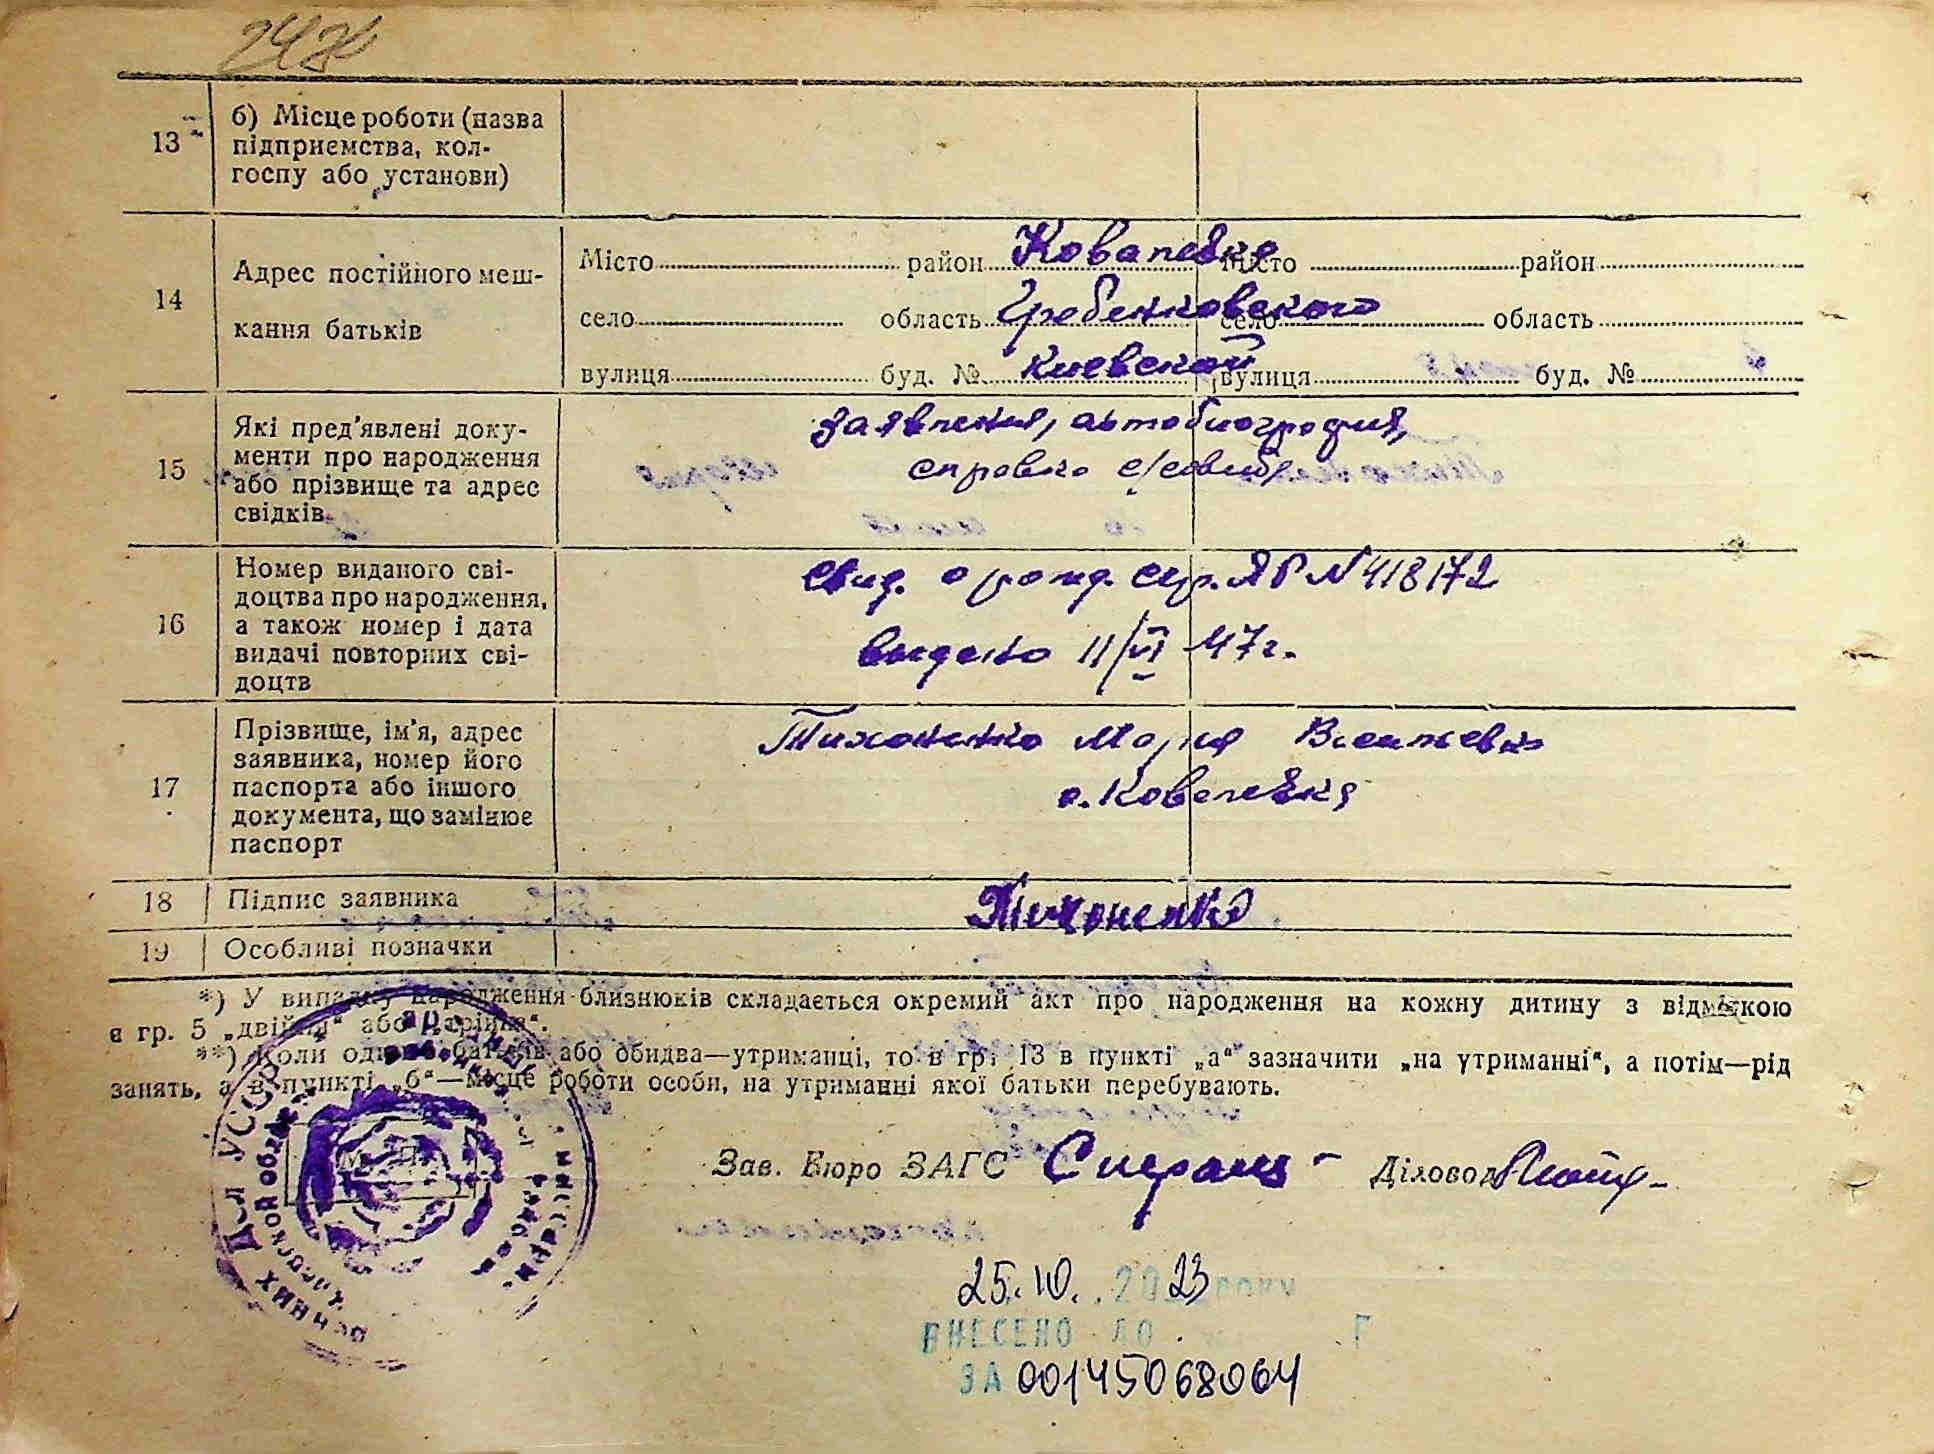 13 **
б) Місце роботи (назва
підприємства, кол-
госпу або установи)
14
Адрес постійного меш-
кання батьків
Місто район Ковалевка Місто район
село область Гребенковского село область
вулиця буд. № Киевской вулиця буд. №
15
Які пред'явлені доку-
менти про народження
або прізвище та адрес
свідків
заявления, автобиография,
справка с/совета
16
Номер виданого сві-
доцтва про народження,
а також номер і дата
видачі повторних сві-
доцтв
Свид. о рожд. сер. ЯР N 418172
выдано 11/VI 47 г.
17
Прізвище, ім'я, адрес
заявника, номер його
паспорта або іншого
документа, що замінює
паспорт
Тихоненко Мария
с. Ковалевка
18 Підпис заявника Тихоненко
19 Особливі позначки
*) У випадку народження близнюків складається окремий акт про народження на кожну дитину з відміткою
в гр. 5 „двійня“ або „трійня“.
**) Коли один з батьків або обидва—утриманці, то в гр. 13 в пункті „а“ зазначити „на утриманні“, а потім—рід
занять, а в пункті „б“—місце роботи особи, на утриманні якої батьки перебувають.
Зав. Бюро ЗАГС Діловод
25.10.2023 РОКУ
ВНЕСЕНО ДО Г
ЗА 00145068064